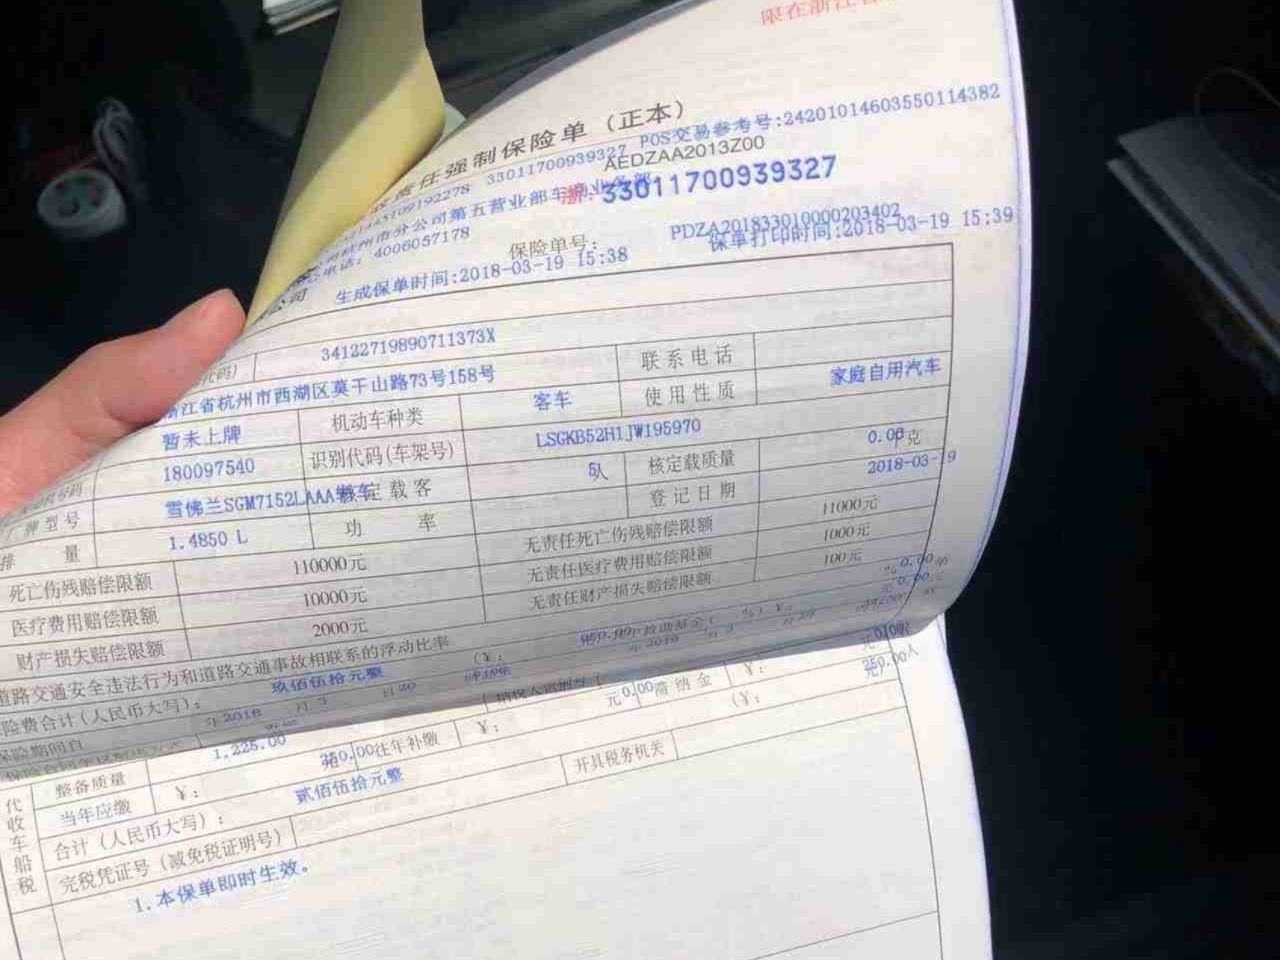 限在浙江省
责任强制保险单（正本）
POS交易参考号:24201014603550114382
5109192278 33011700939327
AEDZAA2013Z00
杭州市分公司第五营业部车商业务部
浙: 33011700939327
电话: 4006057178
保险单号: PDZA201833010000203402
公司 生成保单时间:2018-03-19 15:38 保单打印时间:2018-03-19 15:39
代码) 34122719890711373X
浙江省杭州市西湖区莫干山路73号158号 联系电话
暂未上牌 机动车种类 客车 使用性质 家庭自用汽车
号码 180097540 识别代码(车架号) LSGKB52H1JW195970
牌型号 雪佛兰SGM7152LAAA轿车 核定载客 5人 核定载质量 0.00千克
排量 1.4850 L 功率 登记日期 2018-03-19
死亡伤残赔偿限额 110000元 无责任死亡伤残赔偿限额 11000元
医疗费用赔偿限额 10000元 无责任医疗费用赔偿限额 1000元
财产损失赔偿限额 2000元 无责任财产损失赔偿限额 100元
道路交通安全违法行为和道路交通事故相联系的浮动比率 0.00 %
险费合计(人民币大写): 玖佰伍拾元整 (¥:
保险期间自 2018 年 3 月 20 日
代收车船税
整备质量 1,225.00
当年应缴 ¥: 往年补缴 ¥: 0.00元 滞纳金 ¥:
合计(人民币大写): 贰佰伍拾元整 (¥:
完税凭证号(减免税证明号) 开具税务机关
1.本保单即时生效。